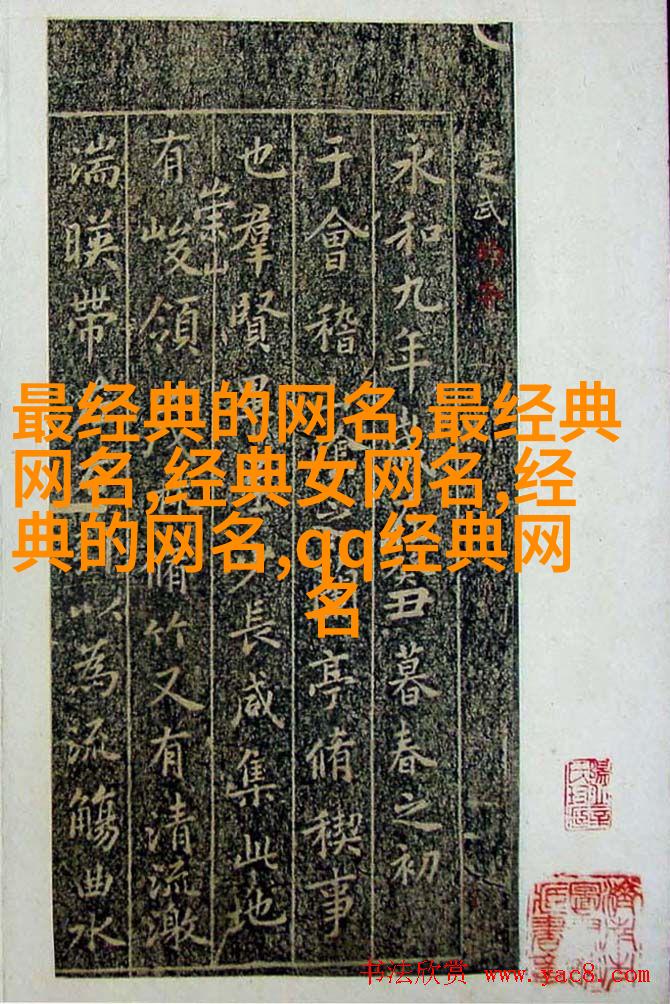 定武
永和九年歲丑暮春之初
于會稽之亭脩稧事
也羣賢畢少長咸集此地
有崇山峻領茂脩竹又有清流激
湍暎帶以為流觴曲水
最经典的网名,最经典
网名,经典女网名,经
典的网名,qq经典网
名
书法欣赏 www.yac8.com